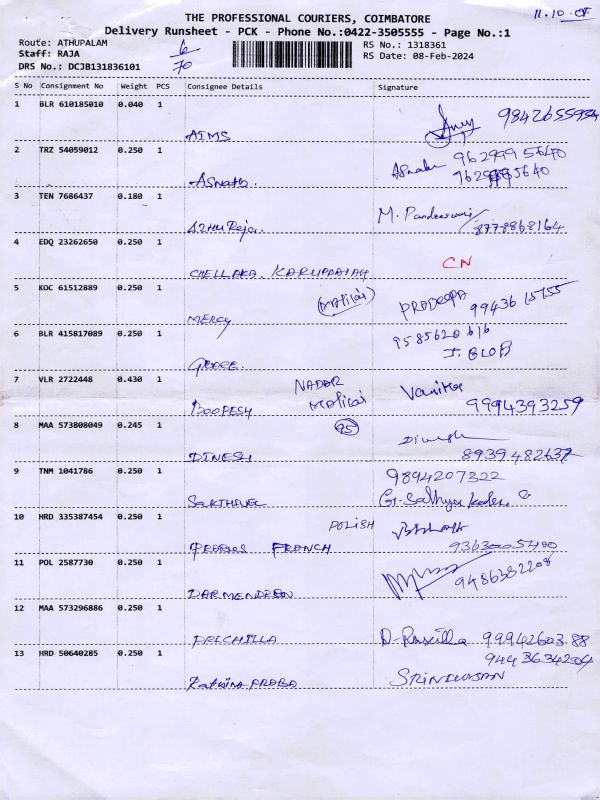 THE PROFESSIONAL COURIERS, COIMBATORE
Delivery Runsheet - PCK - Phone No.:0422-3505555 - Page No.:1
Route: ATHUPALAM
Staff: RAJA
DRS No.: DCJB131836101
6
70
RS No.: 1318361
RS Date: 08-Feb-2024
S No Consignment No Weight PCS Consignee Details Signature
1 BLR 610185010 0.040 1
AIMS 9842655934
2 TRZ 54059012 0.250 1
Asnath. Asnath 9629995640
3 TEN 7686437 0.180 1
M. Pandeeswari 8778868164
4 EDQ 23262650 0.250 1
CN
5 KOC 61512889 0.250 1
MERCY
6 BLR 415817089 0.250 1
Grace. 9585620616
7 VLR 2722448 0.430 1
NADAR
Boopesh Vanitha 9994393259
8 MAA 573808049 0.245 1
DINESH Dinesh 8939482637
9 TNM 1041786 0.250 1
SAKTHIVEL 9894207322
10 HRD 335387454 0.250 1
POLISH
FRENCH 9363005400
11 POL 2587730 0.250 1
9486382208
12 MAA 573296886 0.250 1
PRICHILLA 9994260388
13 HRD 50640285 0.250 1
SRINIVASAN